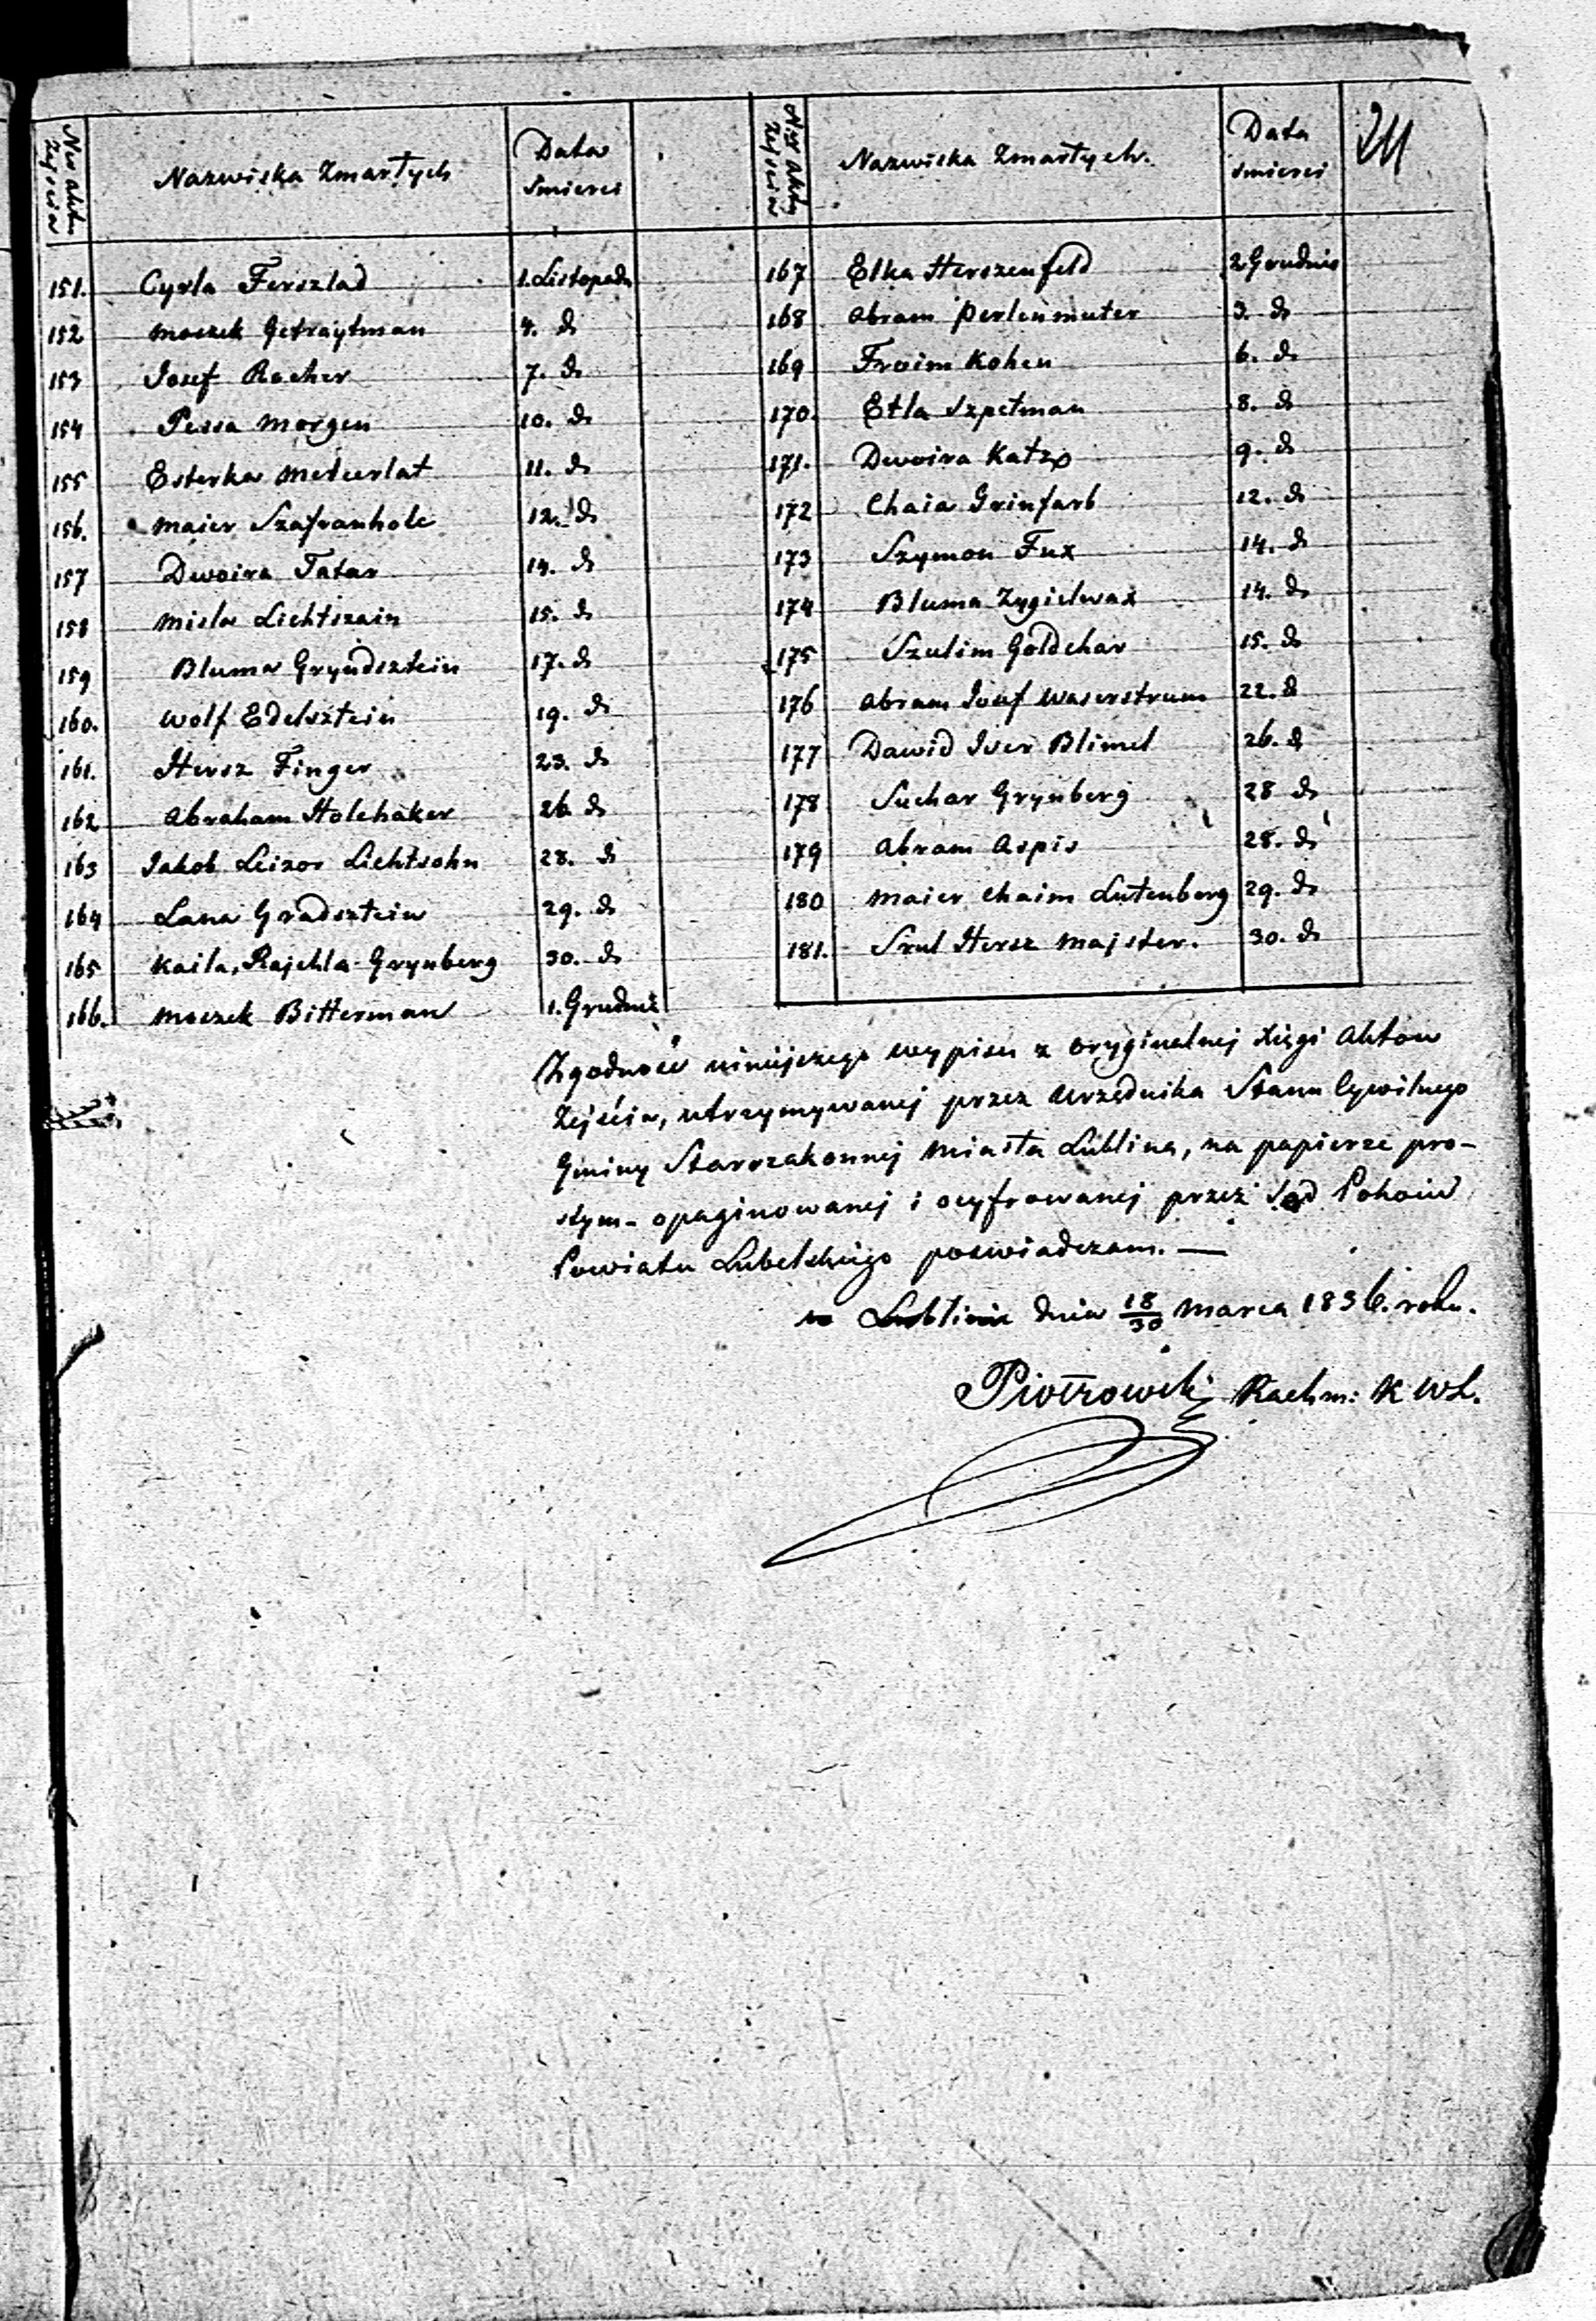 Nro Aktu Zejścia Nazwiska Zmarłych Data Śmierci
151. Cyrla Ferszlad 1. Listopada
152 Moszek Getraytman 4. do
153 Josef Rocher 7. do
154 Pessa Morgen 10. do
155 Esterka 11. do
156. Maier Szafranholc 12. do
157 Dwoira Tatar 14. do
158 Misla Lichtszain 15. do
159 Bluma Gryndsztein 17. do
160. Wolf Edelsztein 19. do
161. Hersz Finger 23. do
162 Abraham Holchaker 26 do
163 Jakob Leizor Lichtsohn 28. do
164 Lana Gradsztein 29. do
165 Kaila, Rajchla Grynberg 30. do
166. Moszek Bitterman 1. Grudnia
Nro Aktu Zejścia Nazwiska Zmarłych. Data śmierci
167 Elka Herszenfeld 2 Grudnia
168 Abram Perlenmuter 3. do
169 Froim Kohen 6. do
170. Etla Szpetman 8. do
171. Dwoira Katz 9. do
172 Chaia Grinfarb 12. do
173 Szymon Fux 14. do
174 Bluma Zygielwax 14. do
175 Szulim Goldchar 15. do
176 Abram Josef Waserstrum 22. do
177 Dawid Iser Blimel 26. do
178 Suchar Grynberg 28 do
179 Abram Aspis 28. do
180 Maier Chaim Lutenberg 29. do
181. Srul Hersz Majster. 30. do
Zgodność niniejszego wypisu z oryginalnej Księgi Aktow
Zejścia, utrzymywanej przez Urzędnika Stanu Cywilnego
Gminy Starozakonnej Miasta Lublina, na papierze pro-
stym - opaginowanej i ocyfrowanej przez Sąd Pokoiu
Powiatu Lubelskiego poswiadczam. —
w Lublinie dnia 18/30 Marca 1836. roku.
Piotrowski Rachm: K W L.